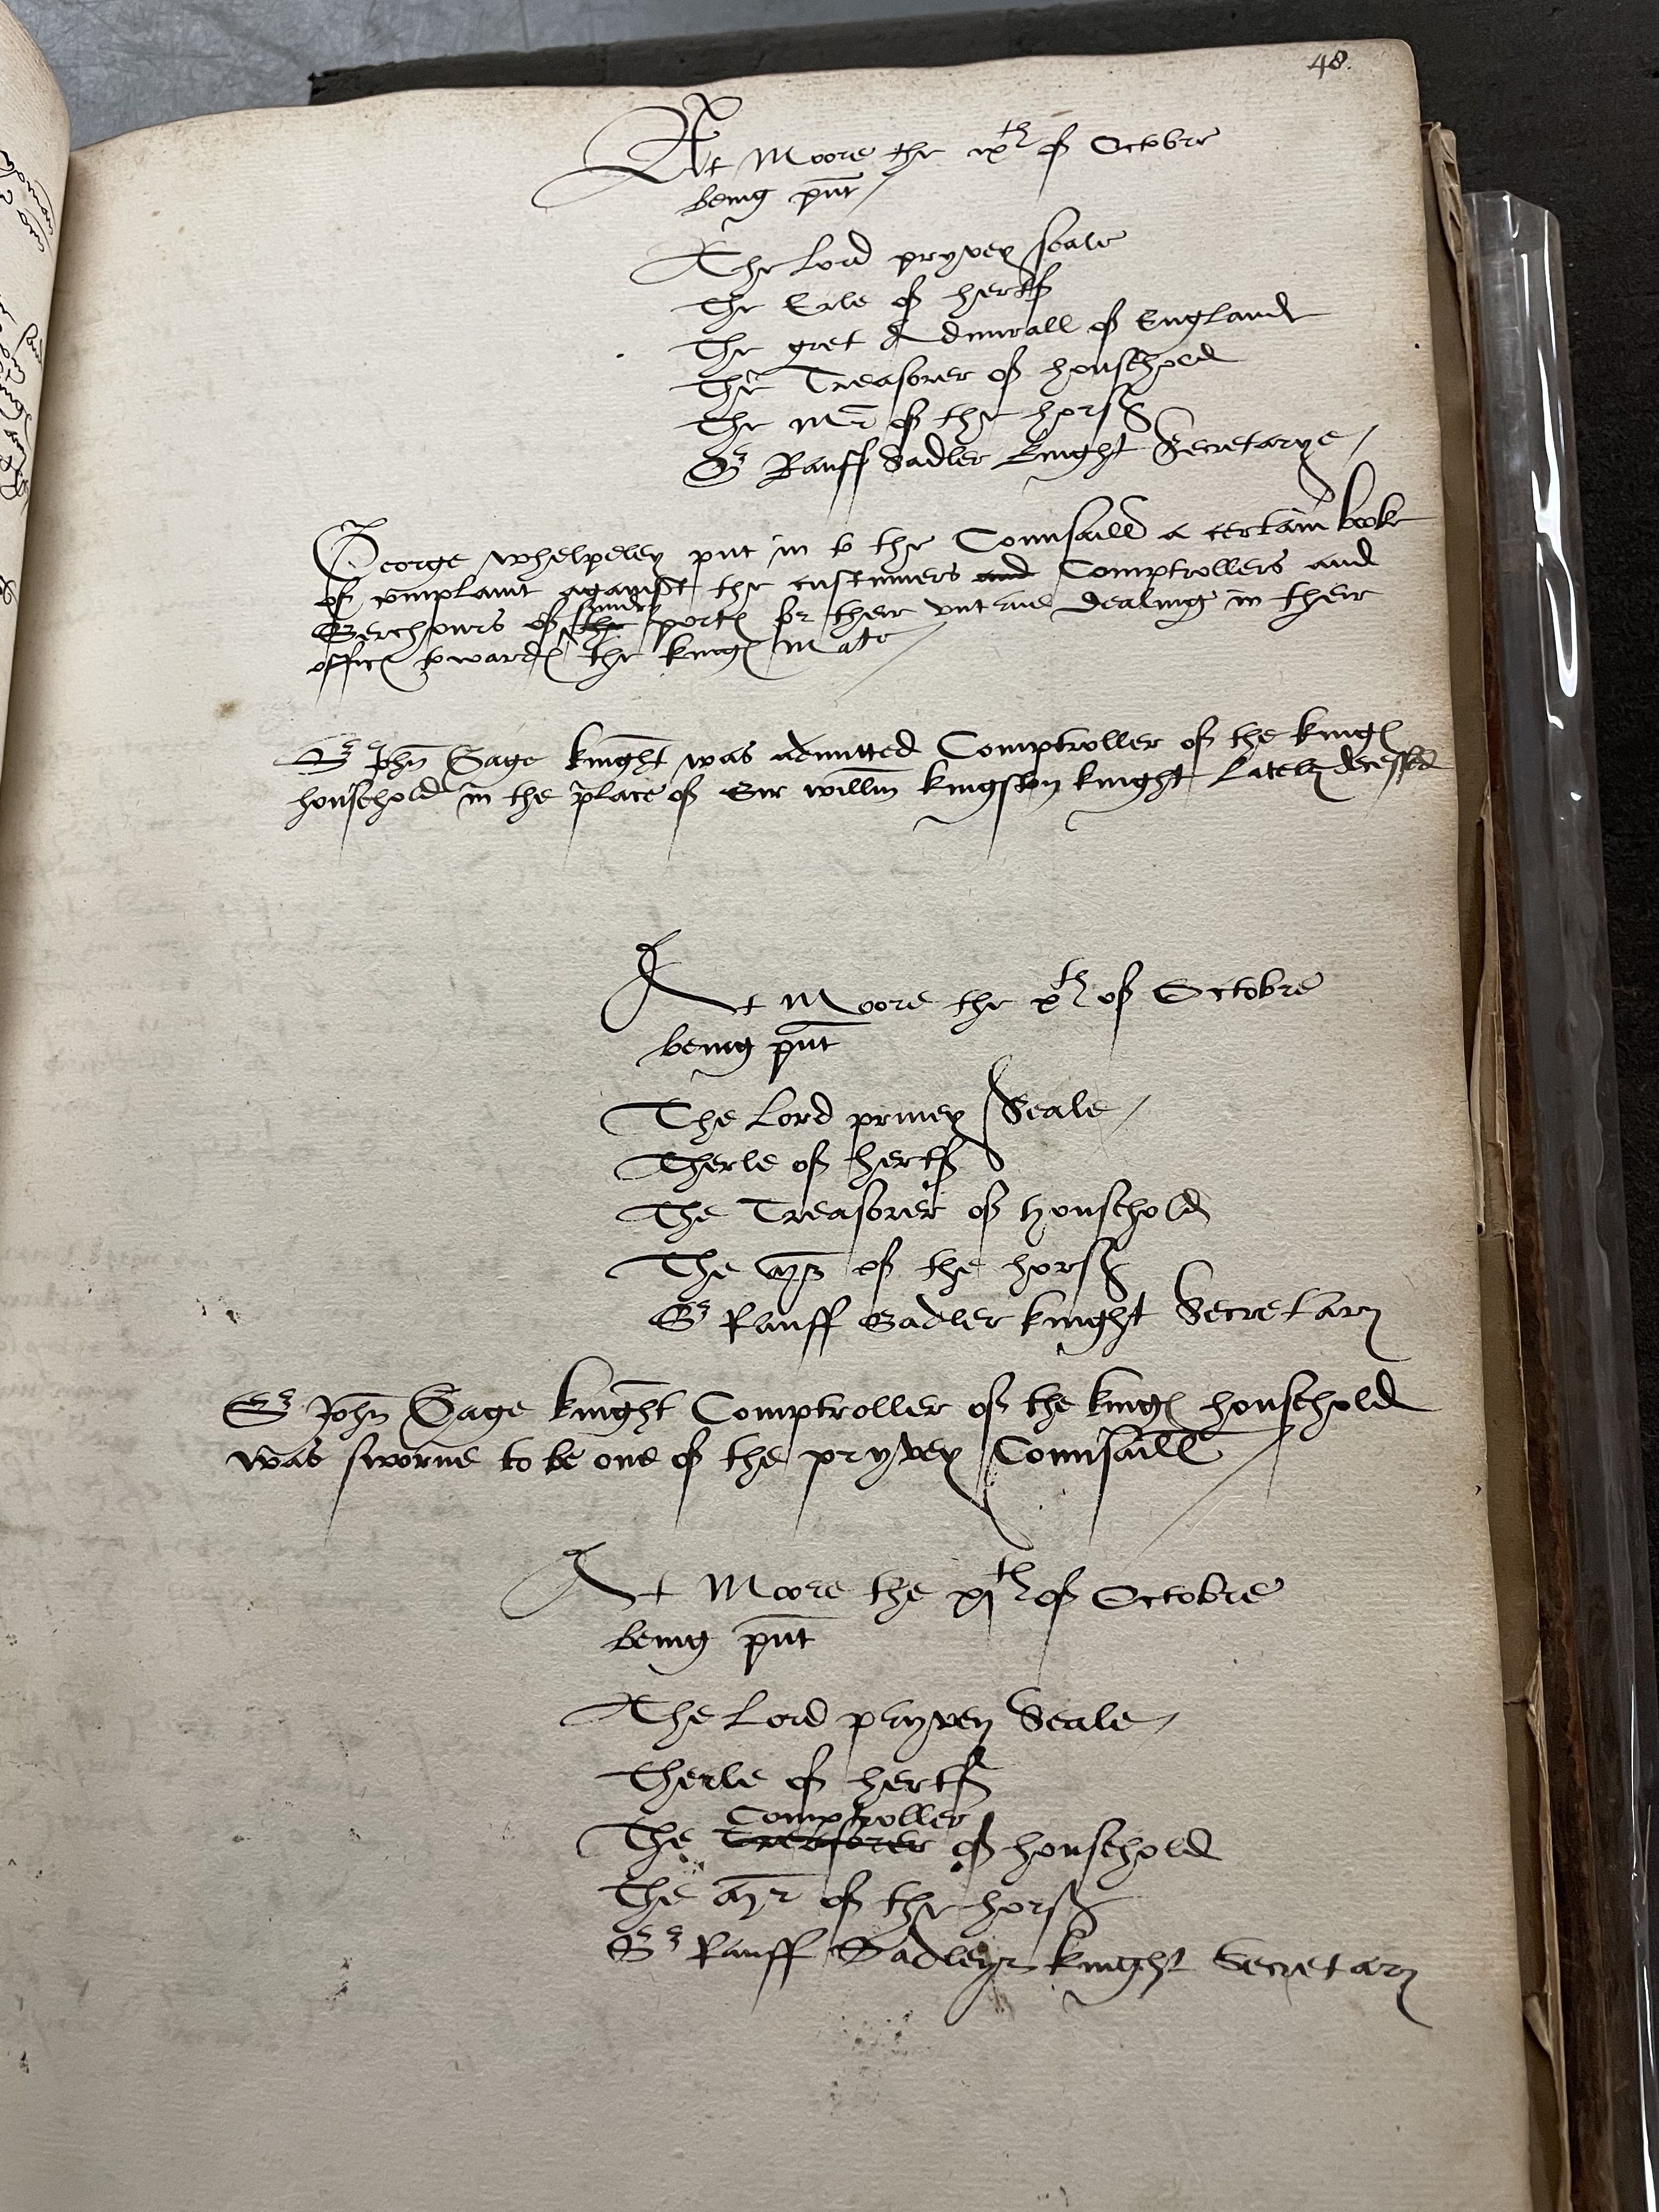 48.
At Moore the ixth of Octobre
being pnt
The Lord pryvey seale
The Erle of hertf
The gret Admirall of Englande
The Treasorer of houshold
The Mr of the horss
Sr Rauff Sadler knight Secretarye
George Whelpeley put in to the Counsaill a certain booke
of complaint against the custumers and Comptrollers and
Serchours of the sundry portes for their untrue dealing in their
offices towardes the kinges Mate
Sr John Gage knight was admitted Comptroller of the kinges
houshold in the place of Sir Willm Kingston knight lately decessed
At Moore the xth of Octobre
being pnt
The Lord privey Seale
Therle of hertf
The Treasorer of houshold
The Mr of the horss
Sr Rauff Sadler knight Secretary
Sr John Gage knight Comptroller of the kinges houshold
was sworne to be one of the pryvey Counsaill
At Moore the xjth of Octobre
being pnt
The Lord pryvey Seale
Therle of hertf
Comptroller
The Treasorer of houshold
The Mr of the horss
Sr Rauff Sadleyr knight Secretary